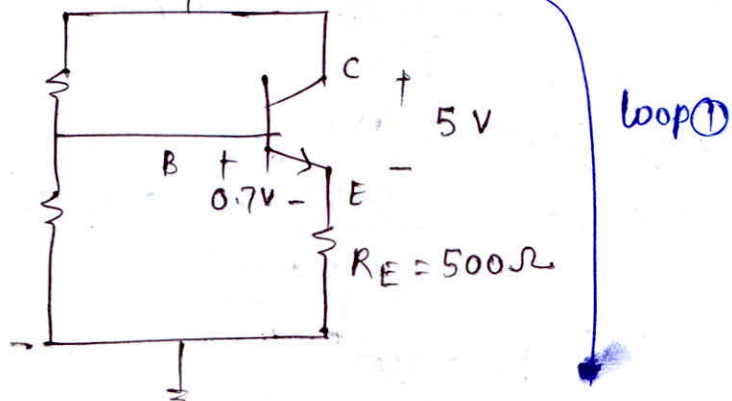 C
+
5 V
-
loop①
B
+
0.7V -
E
RE = 500Ω